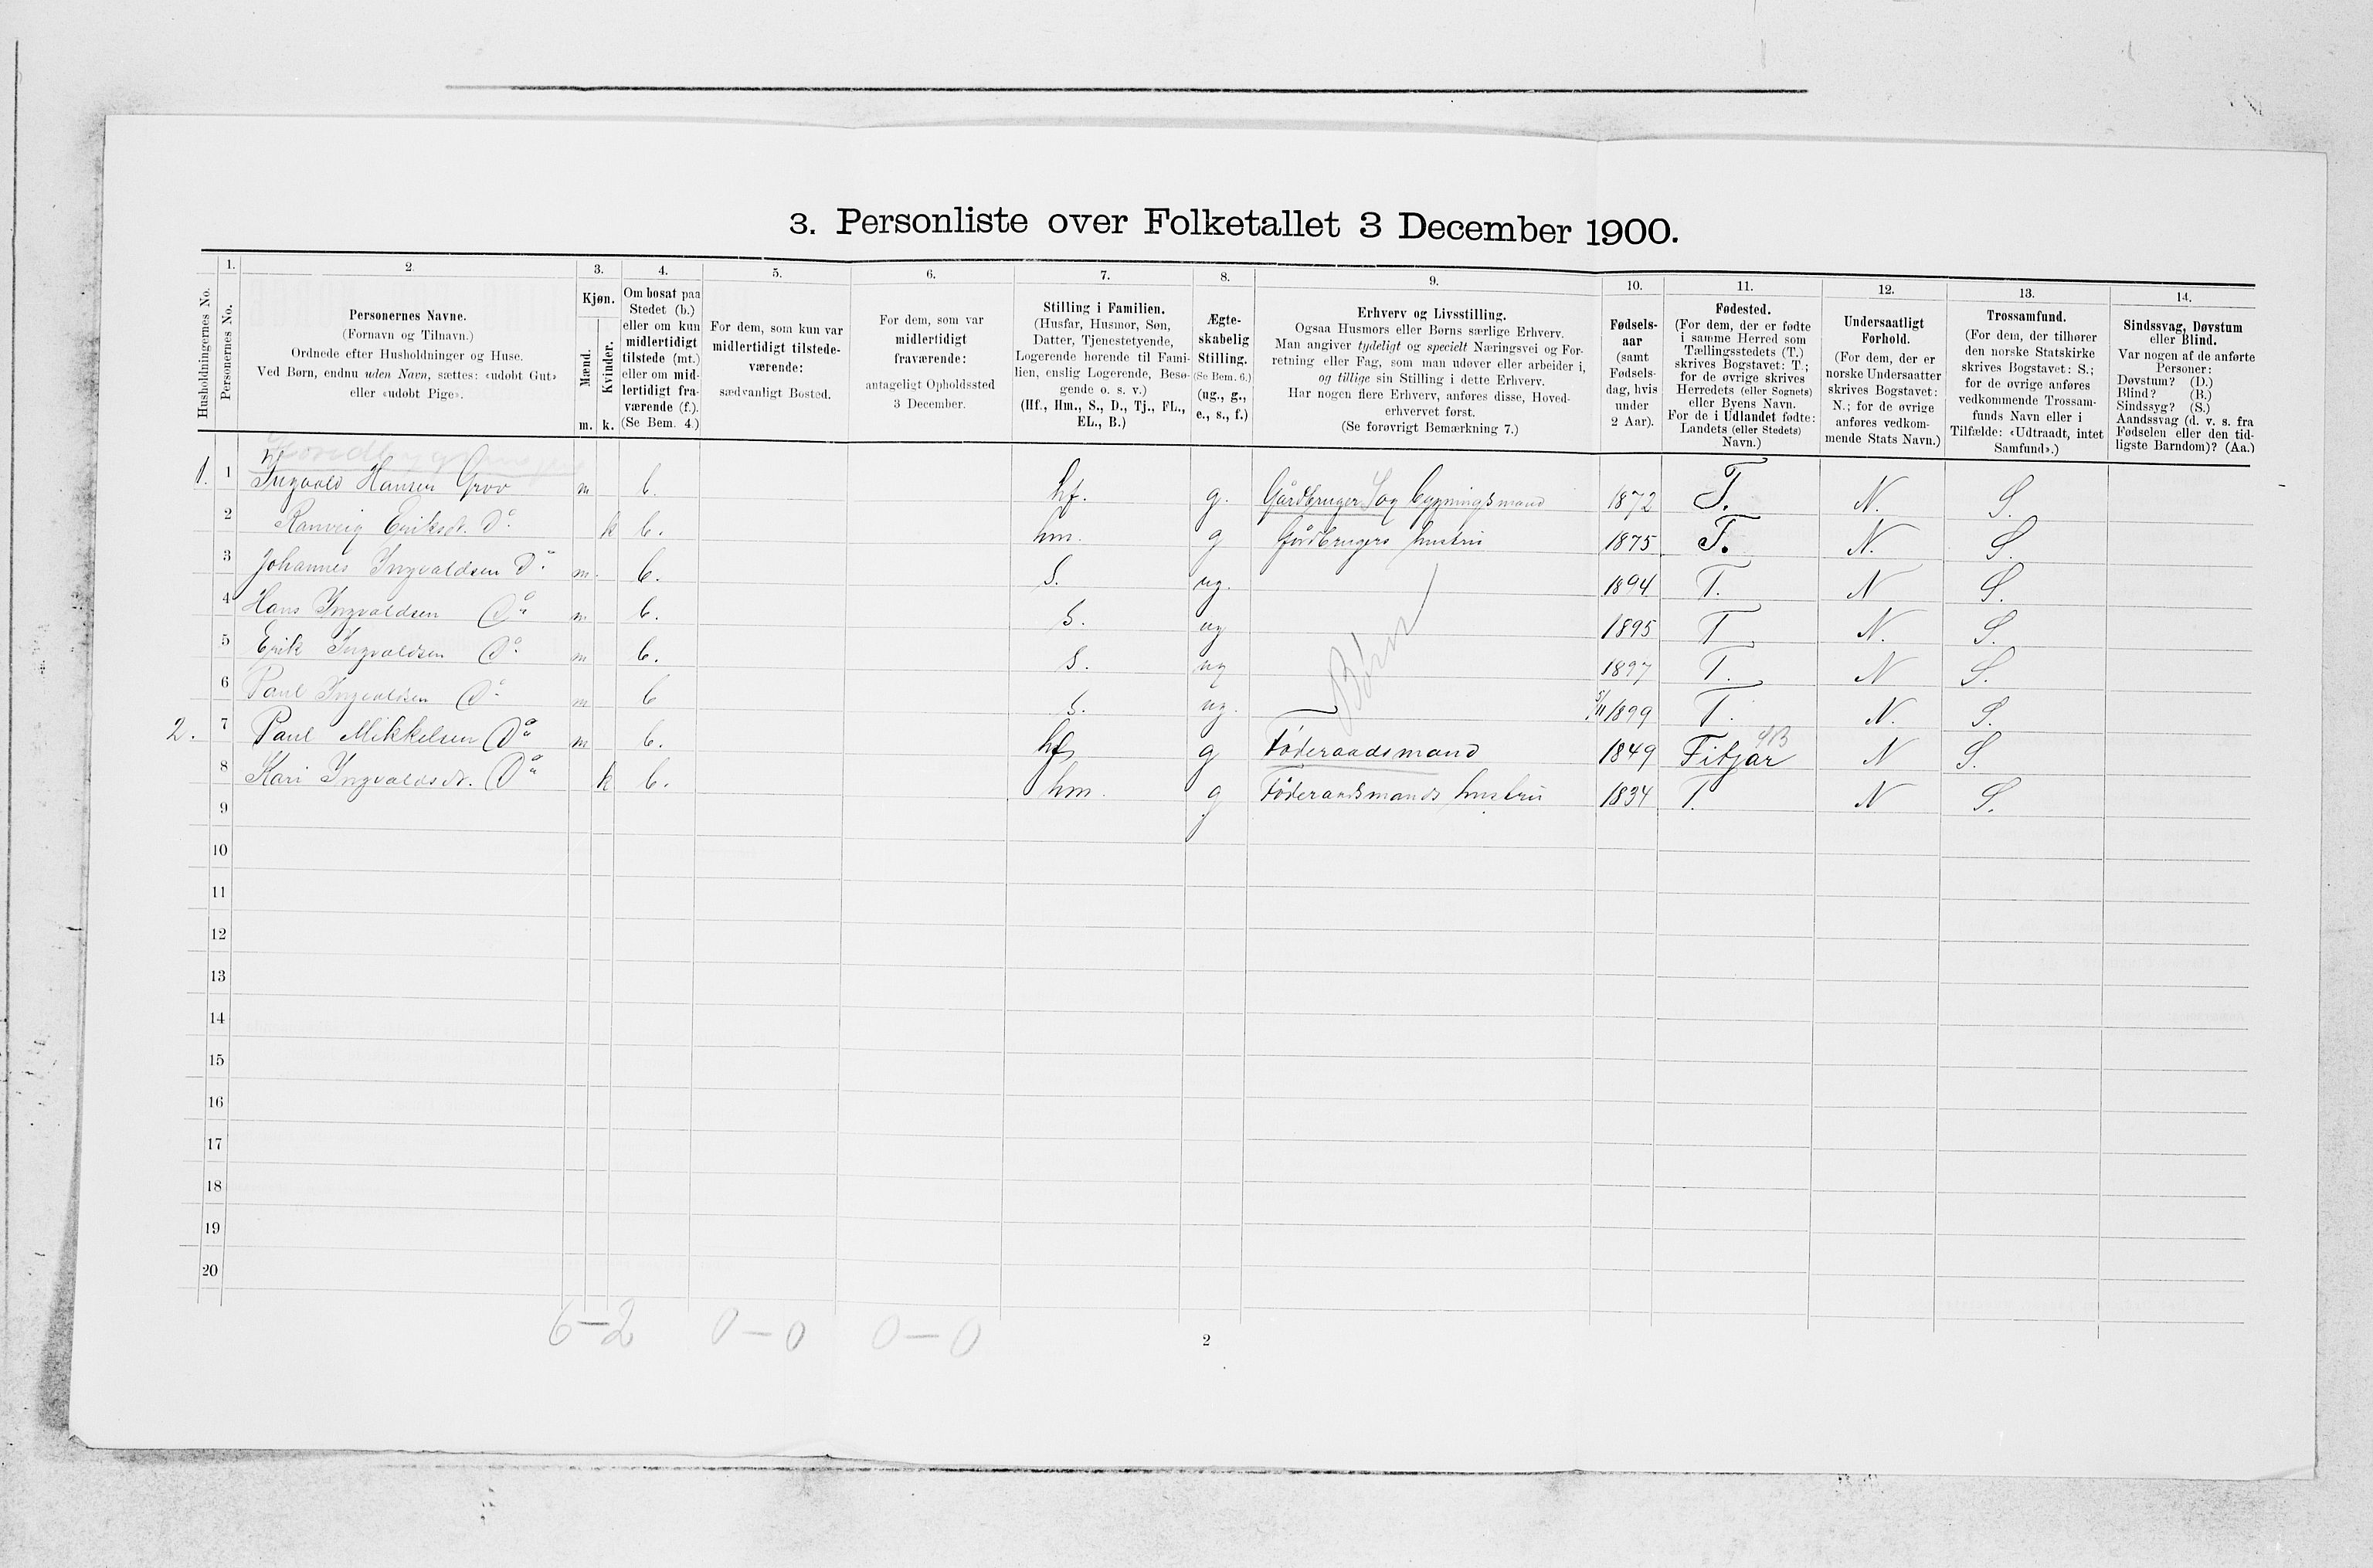 3. Personliste over Folketallet 3 December 1900.
Husholdningernes No.
1.
Personernes No.
2
Personernes Navne.
(Fornavn og Tilnavn.)
Ordnede efter Husholdninger og Huse.
Ved Børn, endnu uden Navn, sættes: «udøbt Gut»
eller «udøbt Pige».
3.
Kjøn.
Mænd.
Kvinder.
m. k.
4.
Om bosat paa
Stedet (b.)
eller om kun
midlertidigt
tilstede (mt.)
eller om mid-
lertidigt fra-
værende (f.).
(Se Bem. 4.)
5.
For dem, som kun var
midlertidigt tilstede-
værende:
sædvanligt Bosted.
6.
For dem, som var
midlertidigt
fraværende:
antageligt Opholdssted
3 December.
7.
Stilling i Familien.
(Husfar, Husmor, Søn,
Datter, Tjenestetyende,
Logerende hørende til Fami-
lien, enslig Logerende, Besø-
gende o. s. v.)
(Hf., Hm., S., D., Tj., FL.,
EL., B.)
8.
Ægte-
skabelig
Stilling.
(Se Bem. 6.)
(ug., g.,
e., s., f.)
9.
Erhverv og Livsstilling.
Ogsaa Husmors eller Børns særlige Erhverv.
Man angiver tydeligt og specielt Næringsvei og For-
retning eller Fag, som man udøver eller arbeider i,
og tillige sin Stilling i dette Erhverv.
Har nogen flere Erhverv, anføres disse, Hoved-
erhvervet først.
(Se forøvrigt Bemærkning 7.)
10.
Fødsels-
aar
(samt
Fødsels-
dag, hvis
under
2 Aar).
11.
Fødested.
(For dem, der er fødte
i samme Herred som
Tællingsstedets (T.)
skrives Bogstavet: T.;
for de øvrige skrives
Herredets (eller Sognets)
eller Byens Navn.
For de i Udlandet fødte:
Landets (eller Stedets)
Navn.)
12.
Undersaatligt
Forhold.
(For dem, der er
norske Undersaatter
skrives Bogstavet:
N.; for de øvrige
anføres vedkom-
mende Stats Navn.)
13.
Trossamfund.
(For dem, der tilhører
den norske Statskirke
skrives Bogstavet: S.;
for de øvrige anføres
vedkommende Trossam-
funds Navn eller i
Tilfælde: «Udtraadt, intet
Samfund».)
14.
Sindssvag, Døvstum
eller Blind.
Var nogen af de anførte
Personer:
Døvstum? (D.)
Blind? (B.)
Sindssyg? (S.)
Aandssvag (d. v. s. fra
Fødselen eller den tid-
ligste Barndom)? (Aa.)
1. 1 Ingvald Hansen Grov m b. hf. g. Gårdbruger S og bygningsmand 1872 T. N. S.
2 Ranveig Eriksdt. Do k b. hm. g Gårdbrugers hustru 1875 T. N. S.
3 Johannes Ingvaldsen Do m. b. S. ug. 1894 T. N S.
4 Hans Ingvaldsen Do m b. S. ug 1895 T N. S.
Børn
5 Erik Ingvaldsen Do m b. S. ug 1897 T. N S.
6 Paul Ingvaldsen Do m b S. ug. 5/11 1899 T. N. S.
2. 7 Paul Mikkelsen Do m b. hf g Föderaadsmand 1849 Fitjar N S.
8 Kari Ingvaldsdt. Do k b. hm. g Föderaadsmands hustru 1834 T. N S.
9
10
11
12
13
14
15
16
17
18
19
20
6–2 0–0 0–0
2